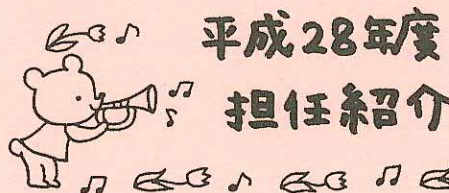 平成28年度
担任紹介